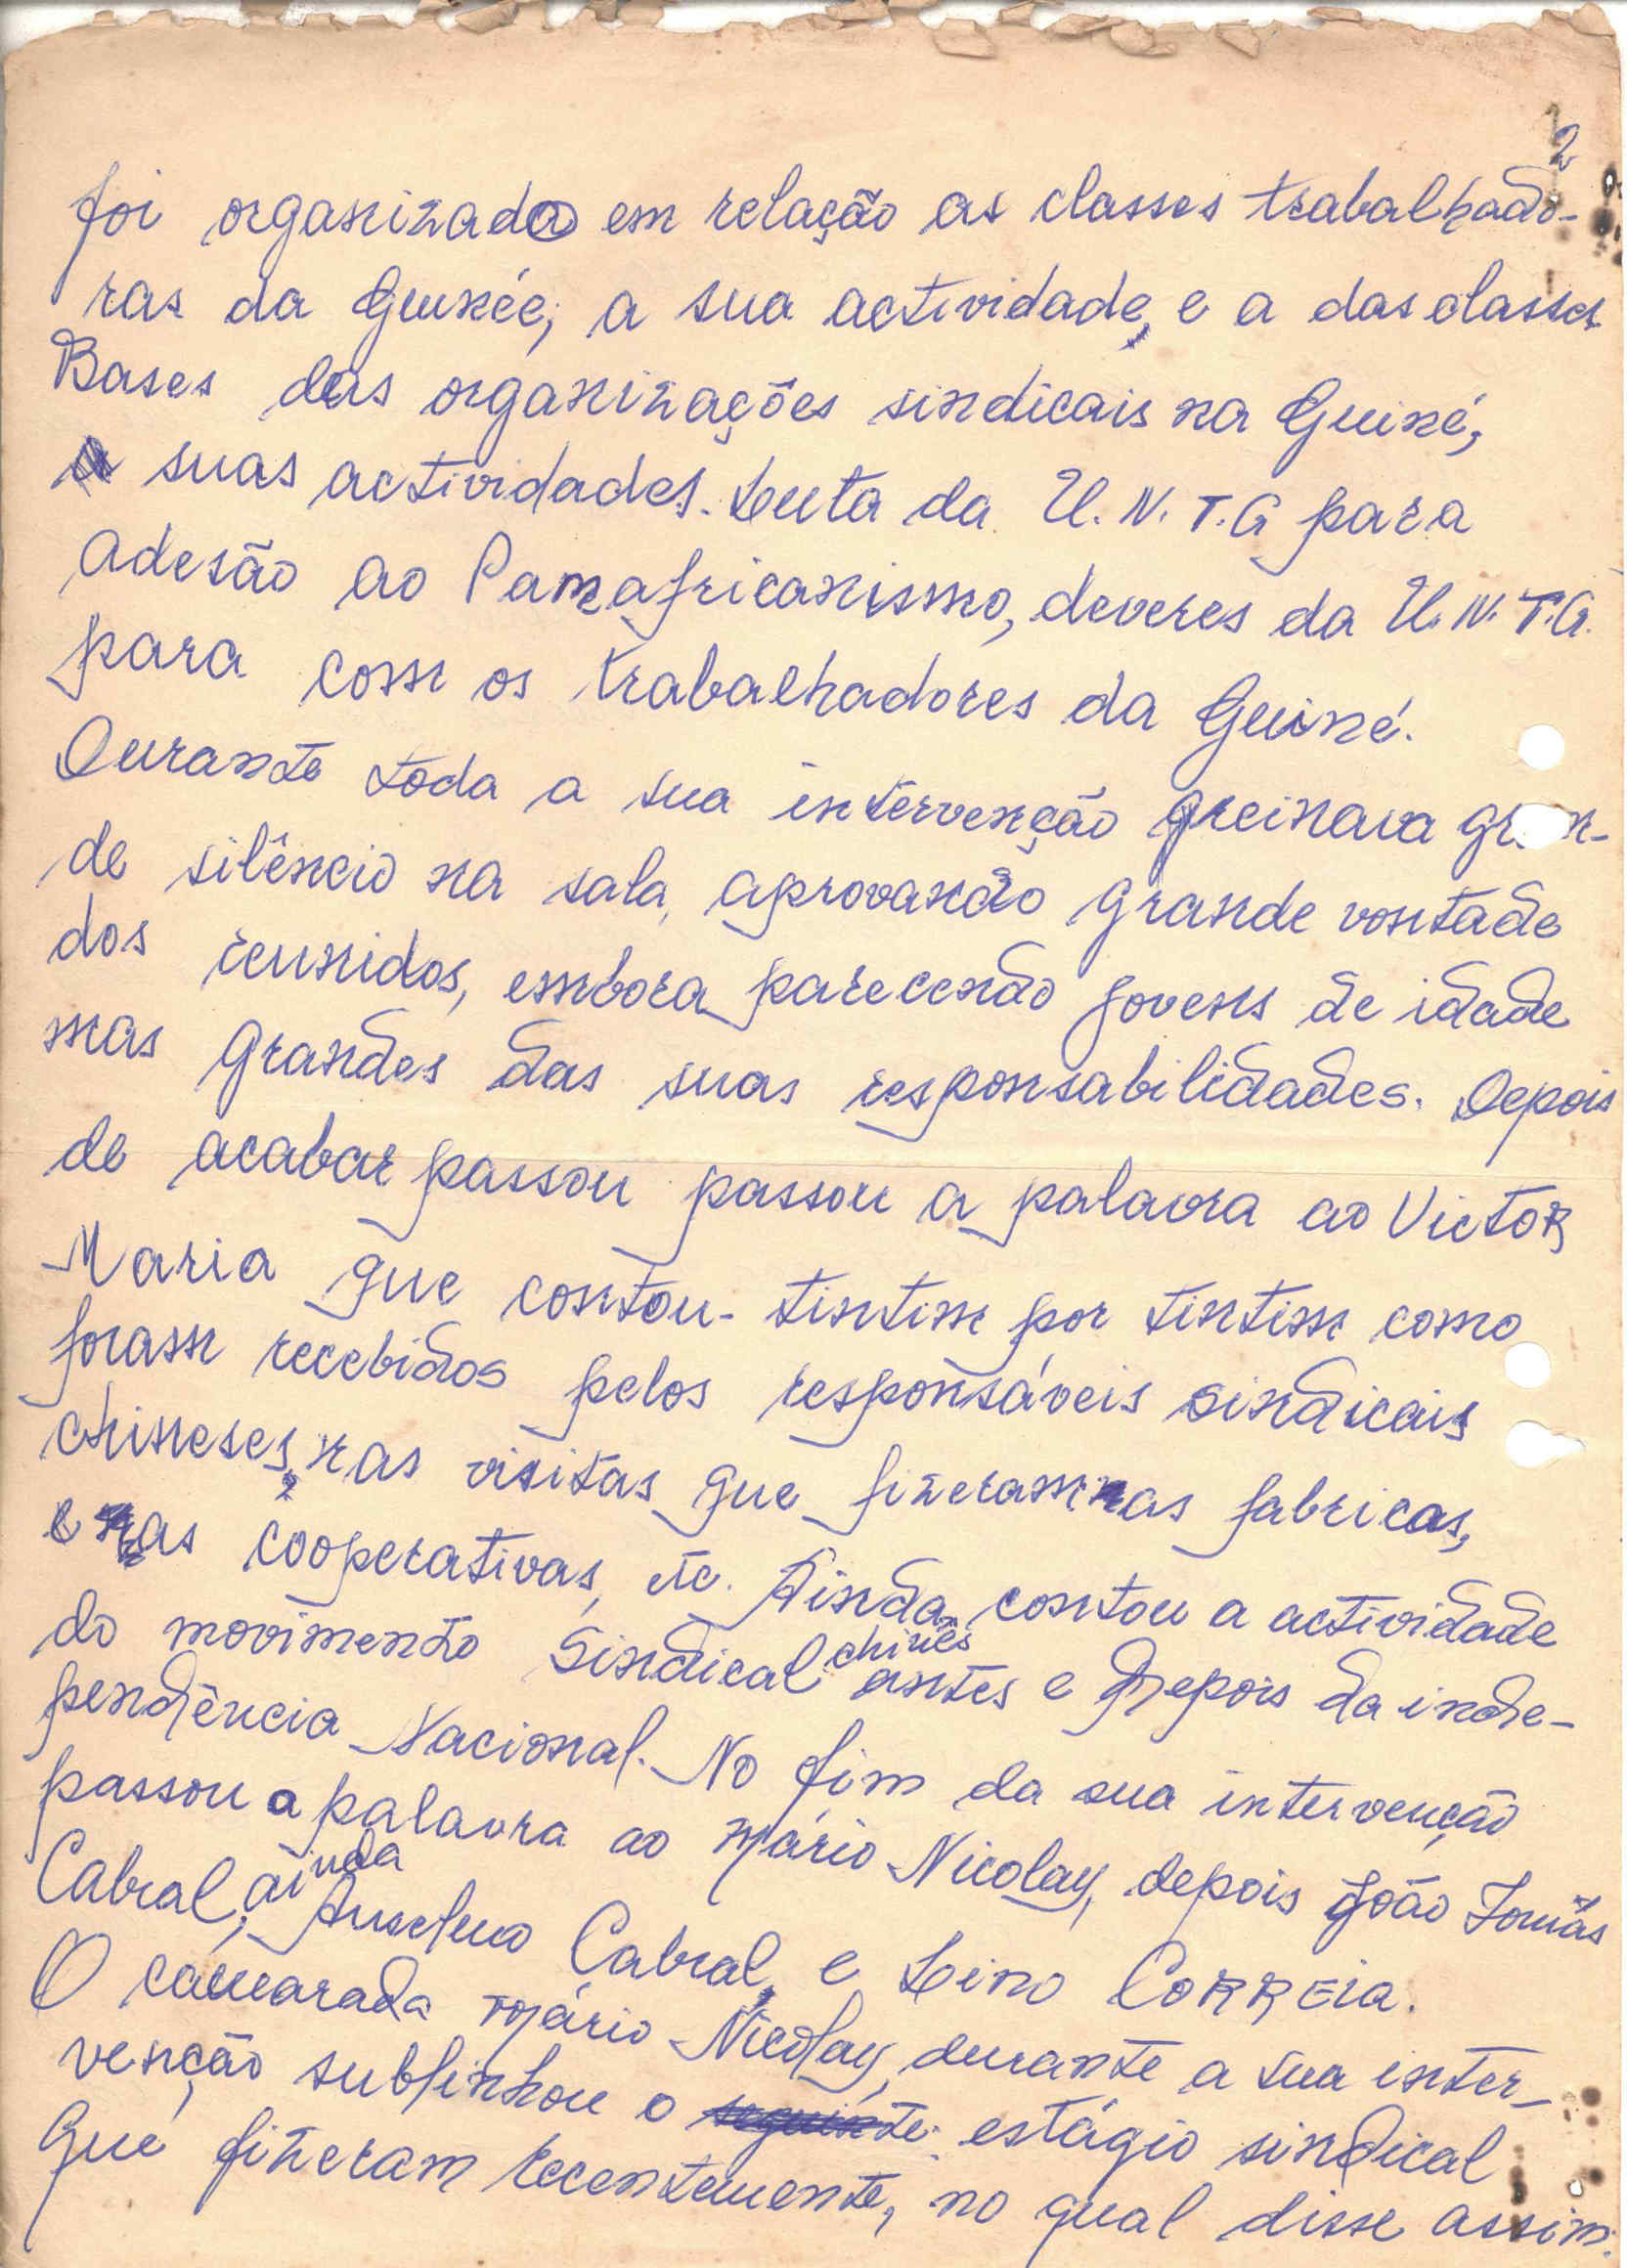 2
foi organizado em relação as classes trabalhado-
ras da Guinée, a sua actividade, e a das classes
Bases das organizações sindicais na Guiné,
suas actividades. Luta da U.N.T.G para
adesão ao Panafricanismo, deveres da U.N.T.G.
para com os trabalhadores da Guiné.
Durante toda a sua intervenção reinava gr n-
de silêncio na sala, aprovando grande vontade
dos reunidos, embora parecendo jovens de idade
mas grandes das suas responsabilidades. Depois
de acabar passou passou a palavra ao Victor
Maria que contou- tintim por tintim como
foram recebidos pelos responsáveis sindicais
chineses, nas visitas que fizeram nas fabricas,
e nas cooperativas, etc. Ainda contou a actividade
do movimento Sindical chinês antes e depois da inde-
pendência Nacional. No fim da sua intervenção
passou a palavra ao Mário Nicolay, depois João Tomás
Cabral, ainda Anselmo Cabral, e Lino CORREIA.
O camarada Mário Nicolay, durante a sua inter-
venção sublinhou o seguinte: estágio sindical
que fizeram recentemente, no qual disse assim: